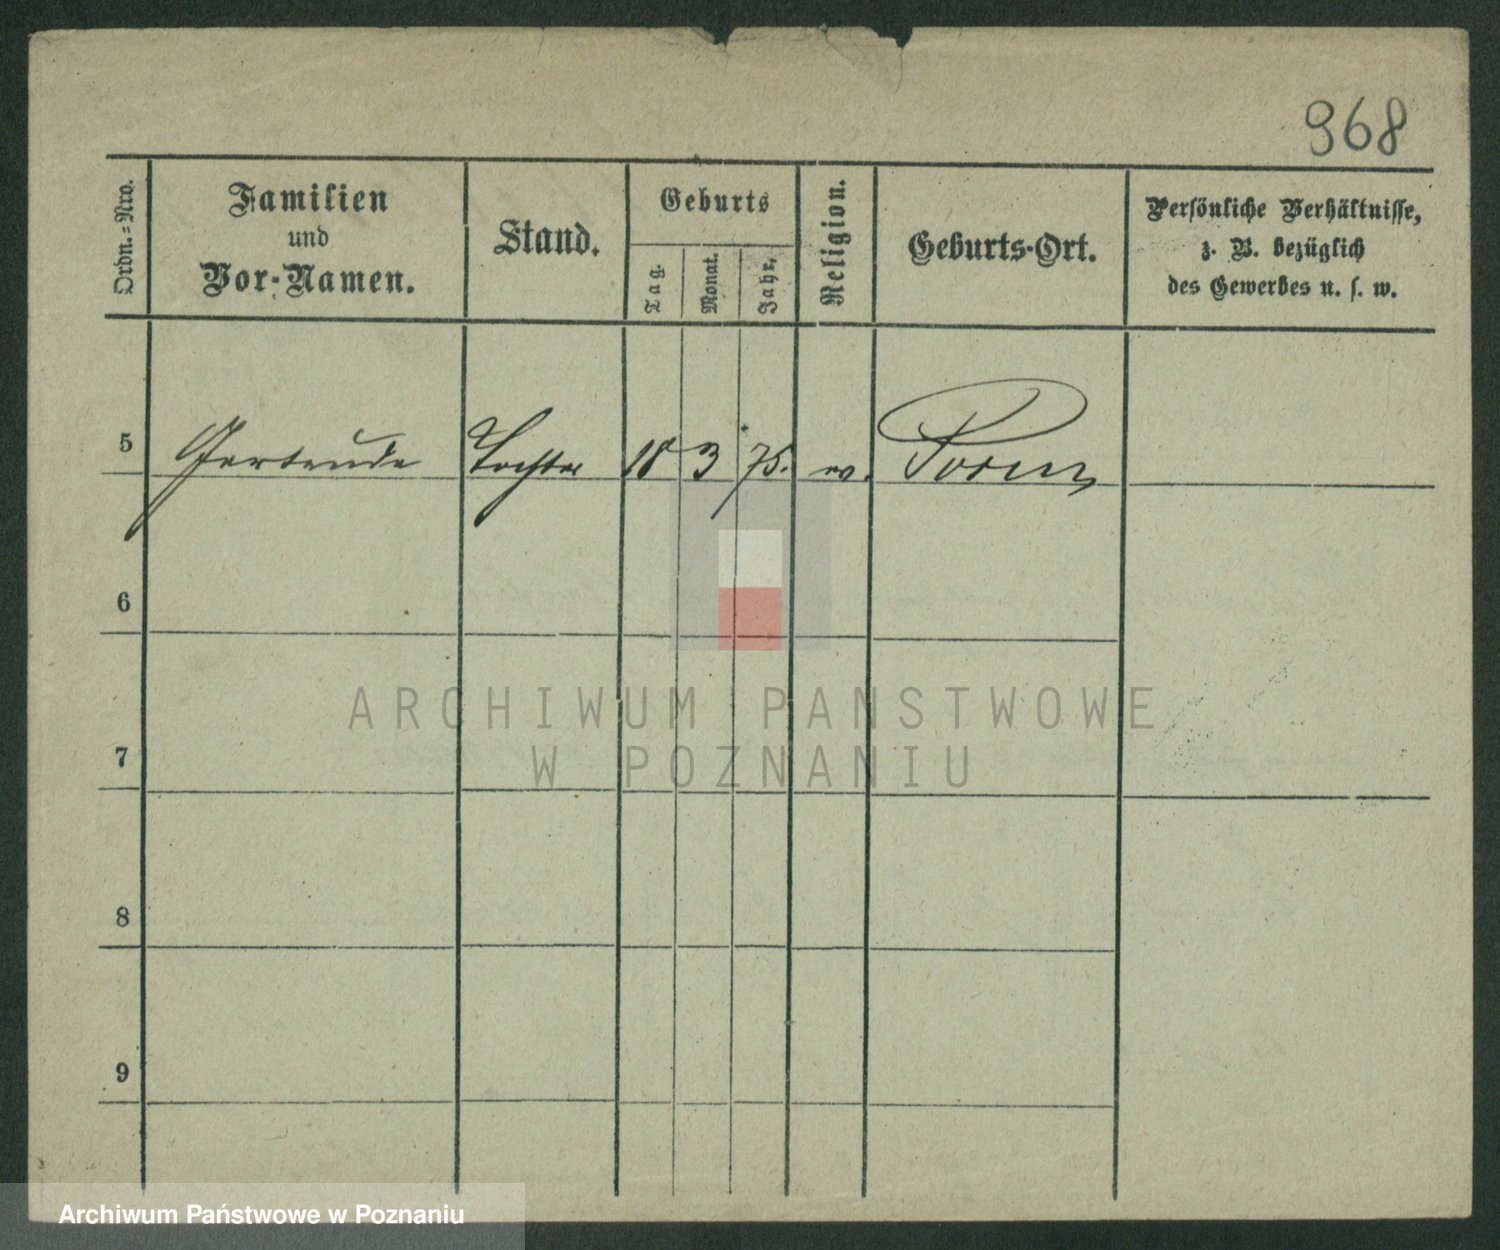 968
Ordn.=Nro.
Familien
und
Vor-Namen.
Stand.
Geburts
Tag.
Monat.
Jahr.
Religion.
Geburts-Ort.
Persönliche Verhältnisse,
z. B. bezüglich
des Gewerbes u. s. w.
5 Gertrude Tochter 18 3 75. ev. Posen
6
7
8
9
ARCHIWUM PANSTWOWE
W POZNANIU
Archiwum Państwowe w Poznaniu